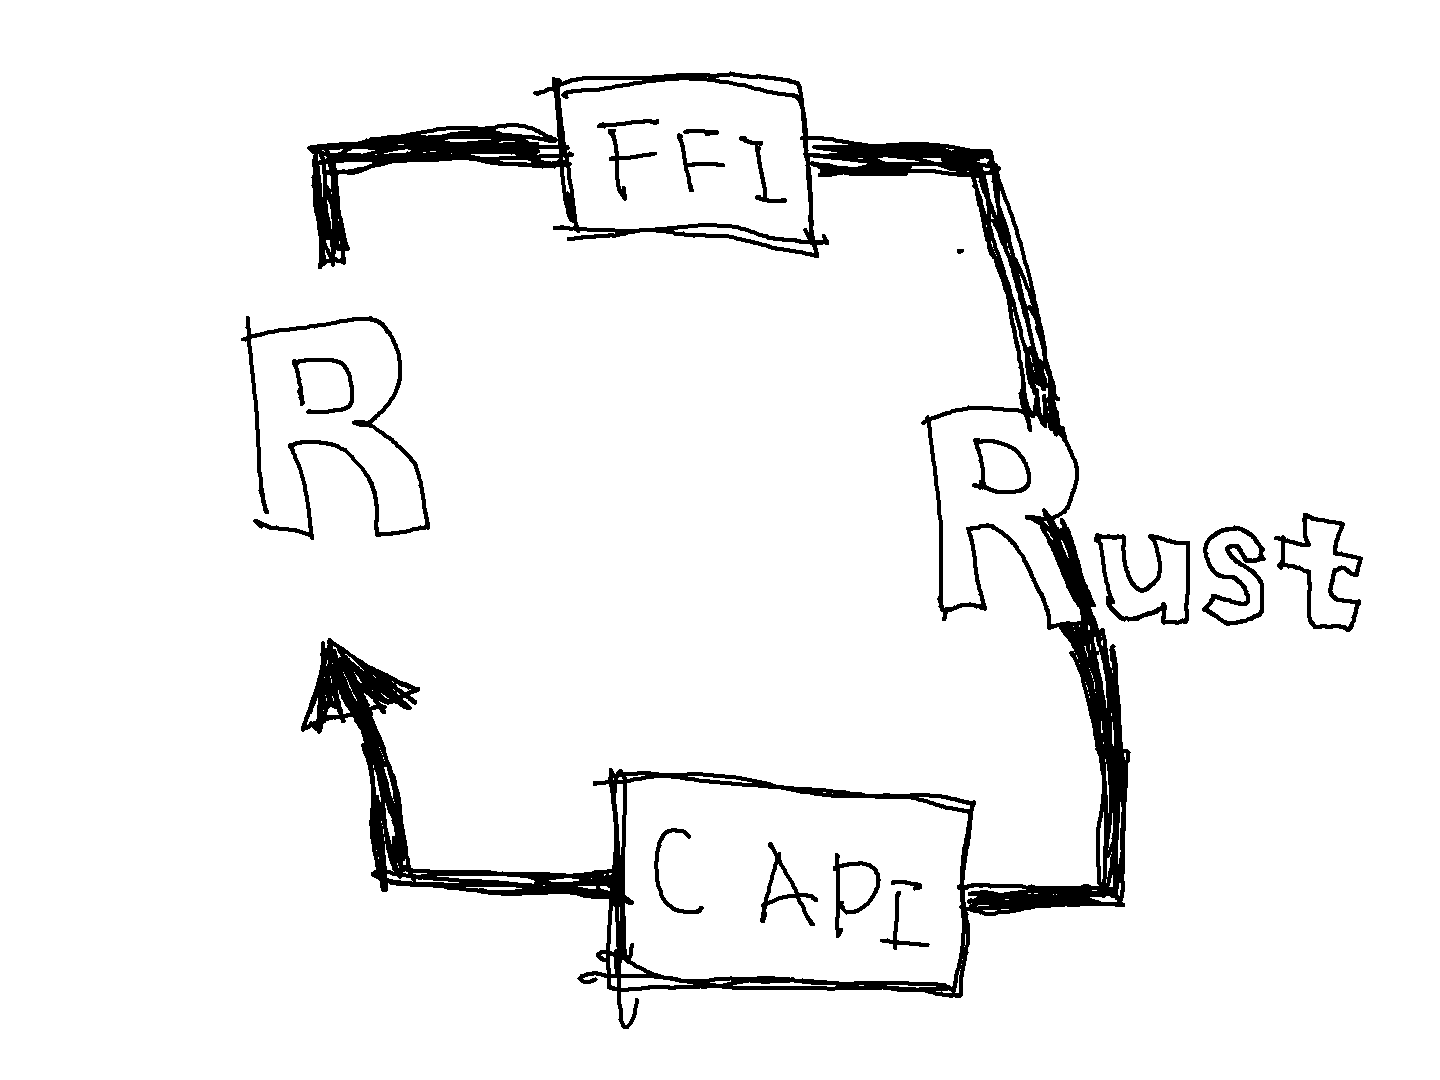 FFI
R
Rust
C API